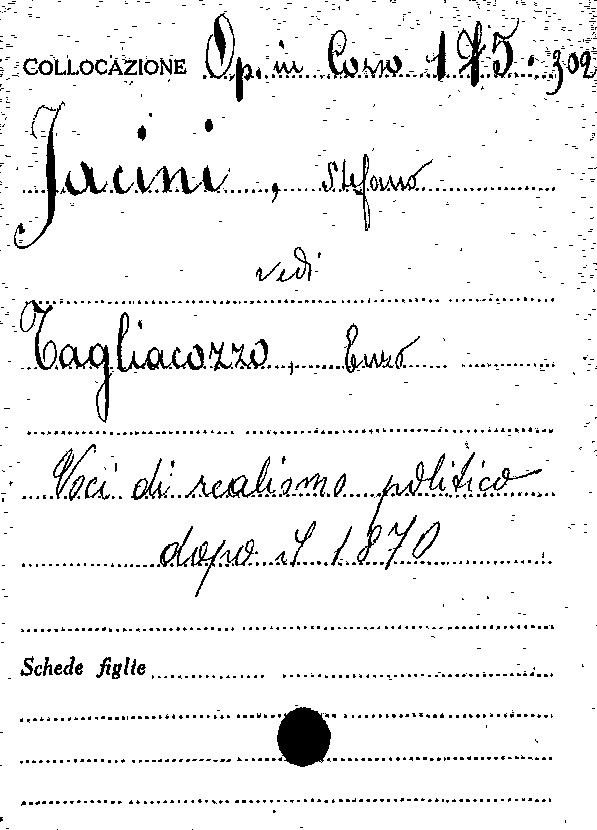 COLLOCAZIONE Op. in Corso 175.302
Jacini, Stefano
vedi
Tagliacozzo, Enzo
Voci di realismo politico
dopo il 1870
Schede figlie